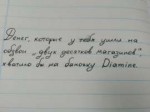 Денег, которые у тебя ушли на
обзвон „двух десятков магазинов"
хватило бы на баночку Diamine.